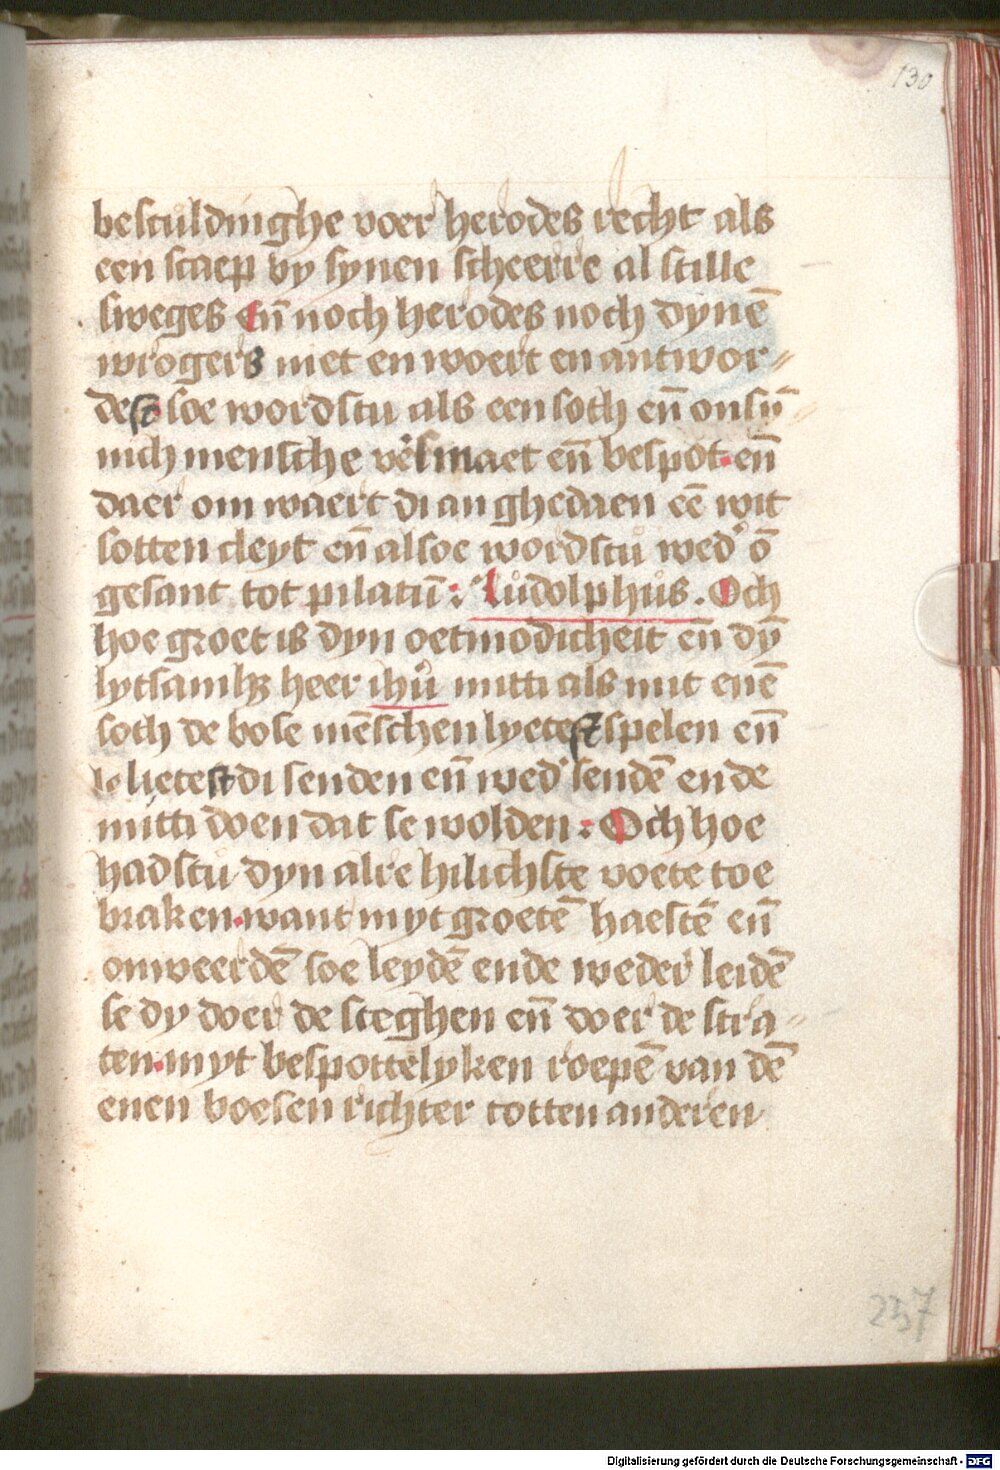 130
bescůldinghe voer herodes recht als
een scaep vy synen scheerre al stille
sweges Eñ noch herodes noch dynē
wrogers niet en woert en antwor⸗
dest soe wordstu als een soth eñ onsȳ
nich mensche v̄smaet eñ bespot eñ
daer om waert di an ghedaen eē wit
sotten cleyt eñ alsoe wordstů wed' ō
gesant tot pilatū : lůdolphůs . Och
hoe groet is dyn oetmodicheit eñ dȳ
lytsamhz heer ihū mitti als mit enē
soth de bose mēschen lyetest spelen eñ
lietest di senden eñ wed' sendē ende
mitti doen dat se wolden : Och hoe
hadstů dyn alre hilichste voete toe
braken want myt groetē haestē eñ
onweerdē soe leydē ende weder leidē
se dy doer de steghen eñ doer de stra⸗
ten myt bespottelyken roepē van dē
enen boesen richter totten anderen
237
Digitalisierung gefördert durch die Deutsche Forschungsgemeinschaft - DFG